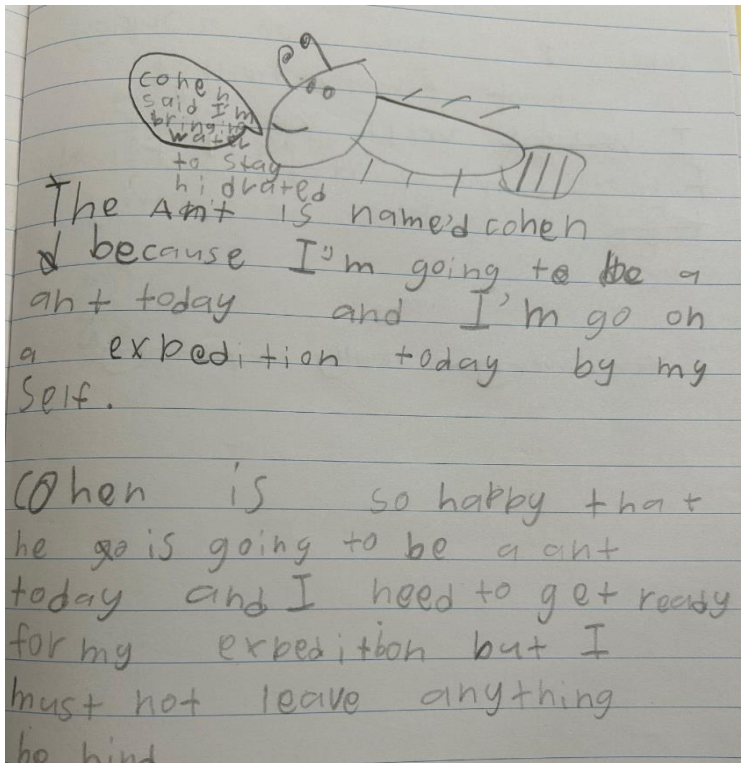 cohen
said I'm
bringing
water
to stay
hidrated
The Ant is name'd cohen
because I'm going to be a
ant today and I'm go on
a expedition today by my
self.
Cohen is so happy that
he is going to be a ant
today and I need to get ready
for my expedition but I
must not leave anything
be hind